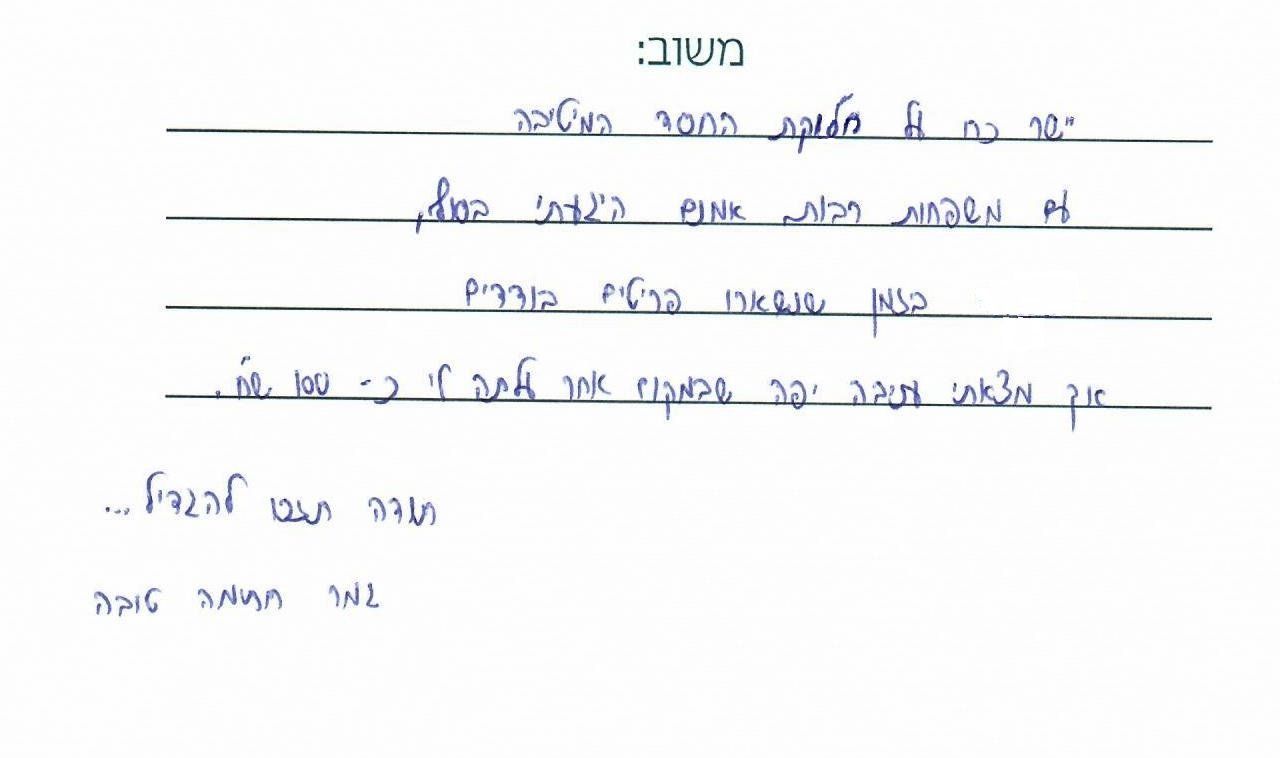 משוב:
יישר כח על חלוקת החסד המיטיבה
עם משפחות רבות אמנם היגעתי בסוף,
בזמן שנשארו פריטים בודדים
אך מצאתי יפה שבמקום אחר עלתה לי כ- 100 ש"ח.
תודה תזכו להגדיל...
גמר חתימה טובה